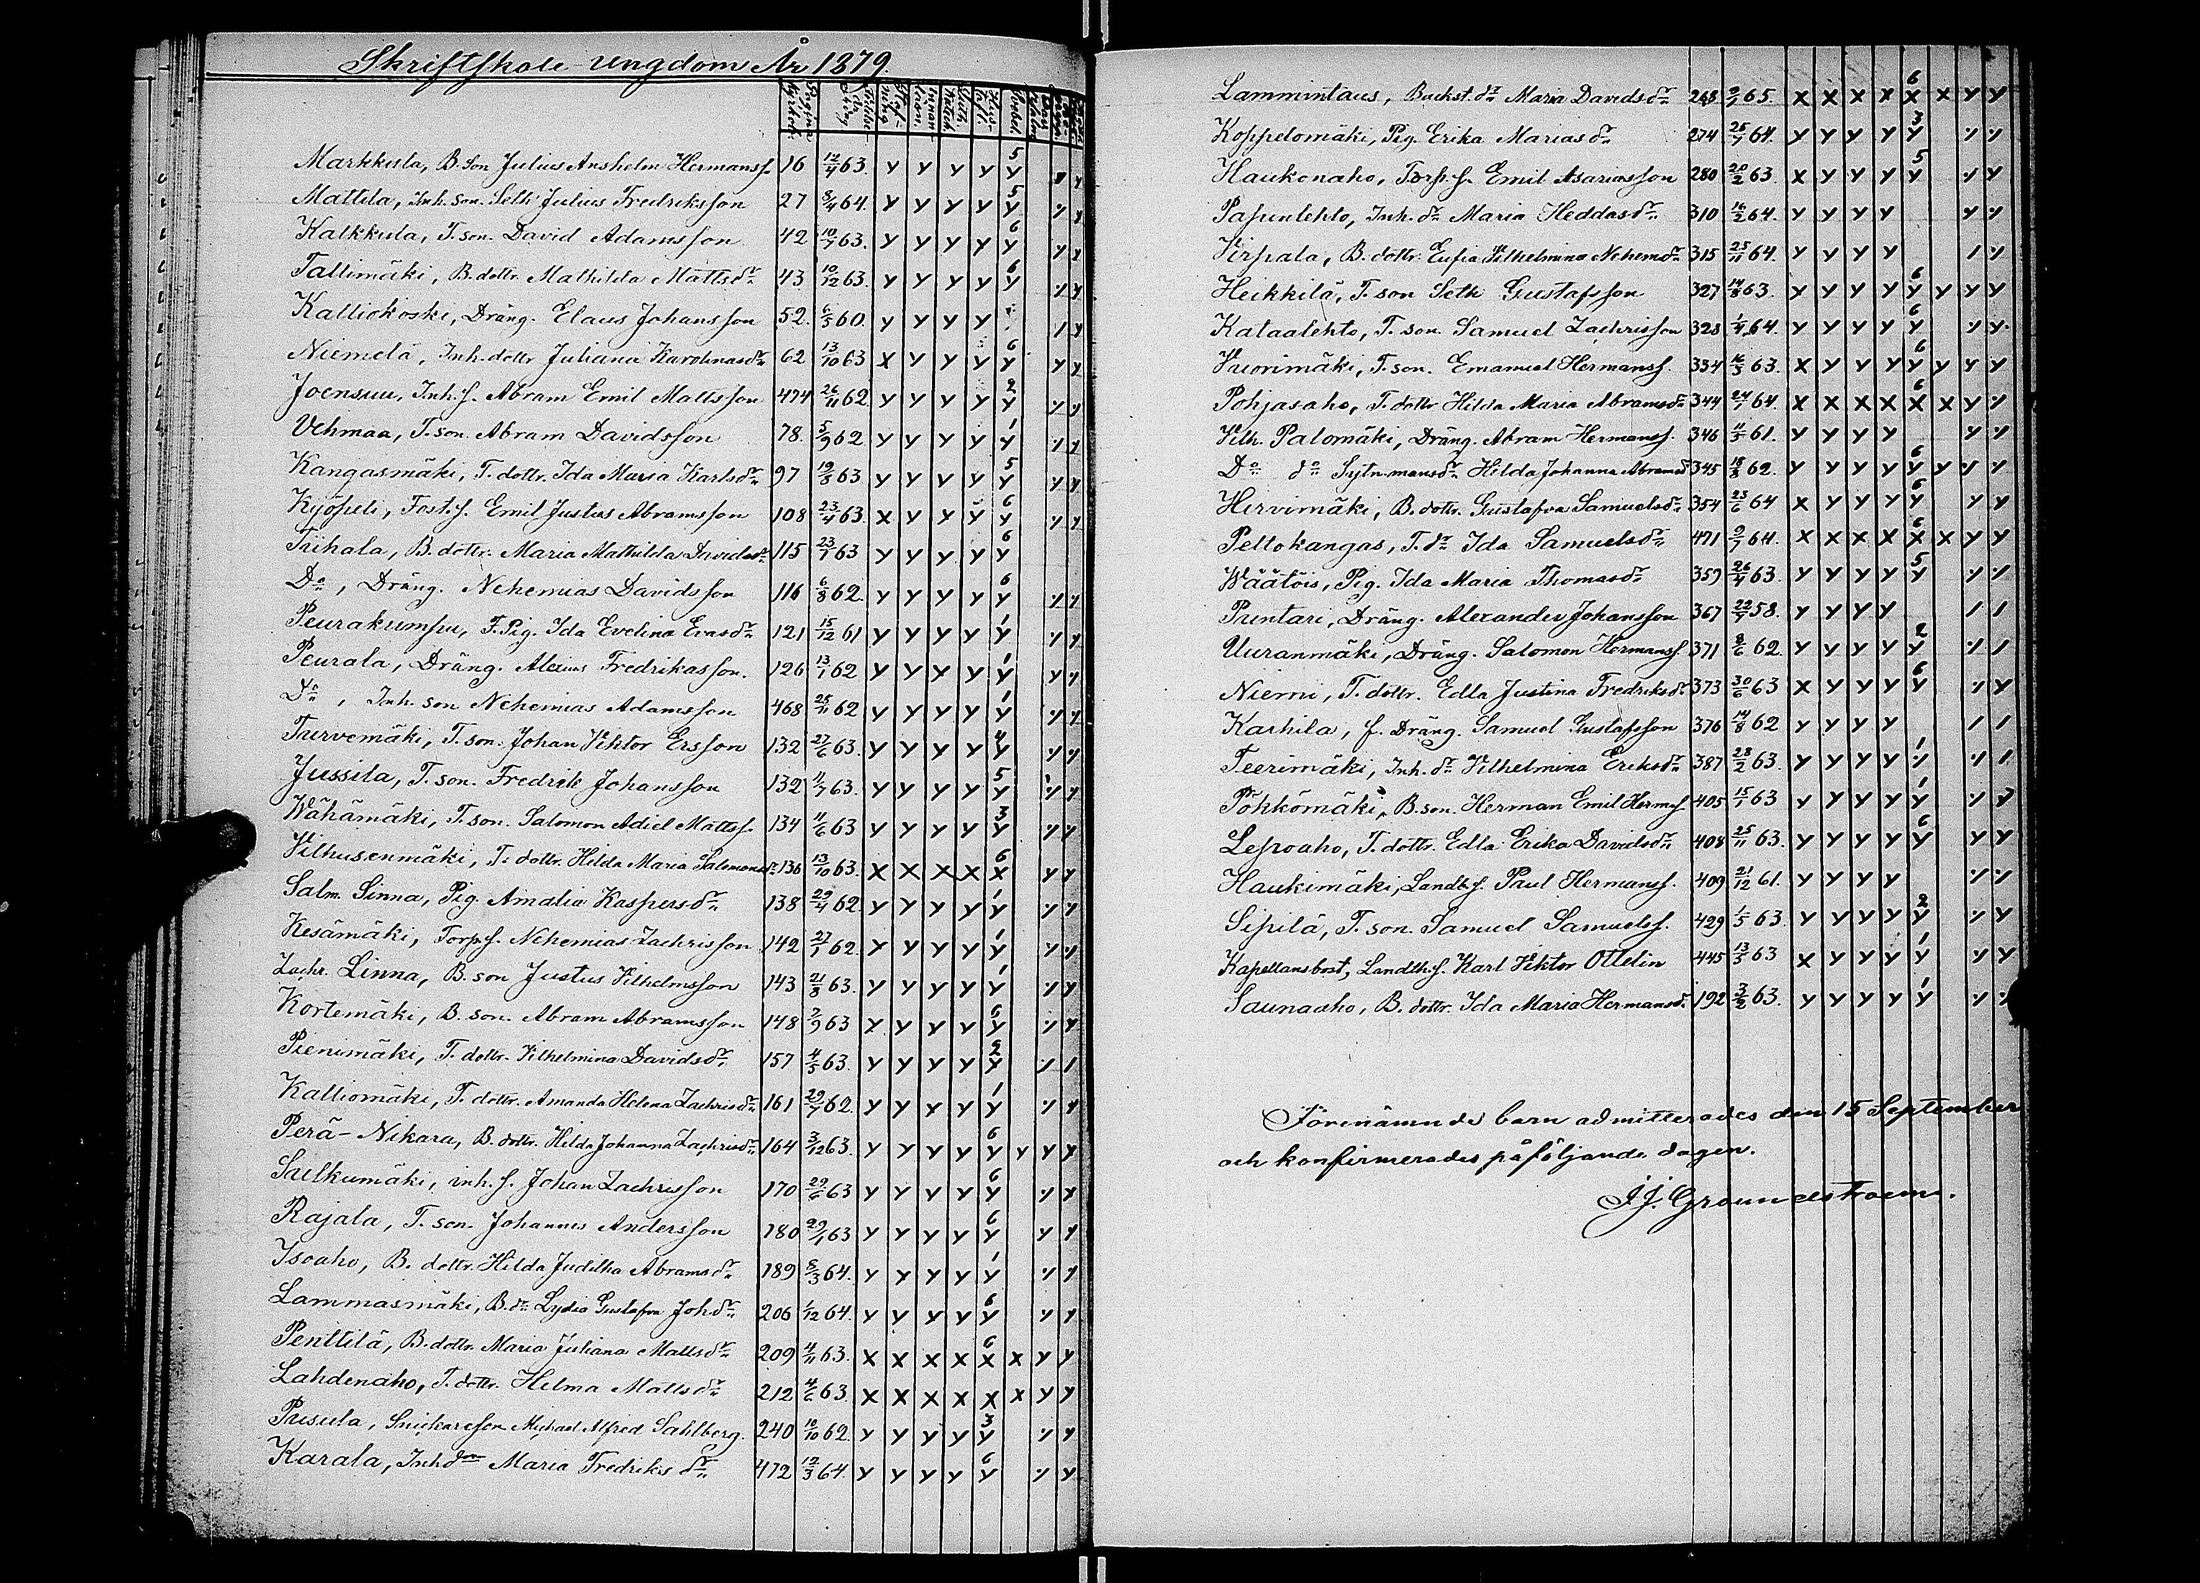 Skriftskole-ungdom År 1879.
Markkula, B. Son Julius Anshelm Hermanss. 16 12/4 63. y y y y 5 y
Mattila, Inh. son. Seth Julius Fredriksson 27 8/4 64. y y y y 5 y
Kalkkula, T. son. David Adamsson 42 10/7 63. y y y y 6 y
Tallimäki, B. dottr. Mathilda Mattsdr. 43 10/12 63. y y y y 6 y
Kalliokoski, Dräng. Elaus Johansson 52. 6/5 60. y y y y
Niemelä, Inh. dottr Juliana Karolinasdr. 62 13/10 63 x y y y 6 y
Joensuu, Inh. s. Abram Emil Mattsson 474 26/11 62 y y y y 2 y
Vehmaa, T. son. Abram Davidsson 78. 5/9 62 y y y y 1 y
Kangasmäki, T. dottr. Ida Maria Karlsdr. 97 19/8 63 y y y y 5 y
Kyöpeli, Fost. s. Emil Justus Abramsson 108 23/4 63. x y y y 6 y
Tiihala, B. dottr. Maria Mathilda Davidsdr. 115 23/1 63 y y y y 6 y
Do, Dräng. Nehemias Davidsson 116 6/8 62. y y y y 6 y
Peurakumpu, F. Pig. Ida Evelina Evasdr. 121 15/12 61 y y y y 1 y
Peurala, Dräng. Alexius Fredrikasson. 126 13/1 62 y y y y 1 y
Do, Inh. son Nehemias Adamsson 468 25/11 62 y y y y 1 y
Turvemäki, T. son. Johan Viktor Ersson 132 27/6 63. y y y y 4 y
Jussila, T. son. Fredrik Johansson 132 11/7 63. y y y y 5 y
Wähämäki, T. son. Salomon Adiel Mattss. 134 11/6 63 y y y y 3 y
Vilhusenmäki, T. dottr. Hilda Maria Salomonsdr. 136 13/10 63. x x x x 6 x y y
Salm. Linna, Pig. Amalia Kaspersdr. 138 29/4 62. y y y y 1 y
Kesämäki, Torp. s. Nehemias Zachrisson 142 27/1 62. y y y y 1 y
Zachr. Linna, B. son Justus Vilhelmsson 143 21/8 63. y y y y 1 y
Kortemäki, B. son. Abram Abramsson 148 2/9 63 y y y y 6 y
Pienimäki, T. dottr. Vilhelmina Davidsdr. 157 4/5 63. y y y y 2 y
Kalliomäki, T. dottr. Amanda Helena Zachrisdr. 161 29/7 62. y y y y 1 y
Perä-Nikara, B. dottr. Hilda Johanna Zachrisdr. 164 3/12 63. y y y y 6 y y y y
Sulkumäki, inh. s. Johan Zachrisson 170 29/6 63 y y y y 6 y
Rajala, T. son. Johannes Andersson 180 29/1 63 y y y y 6 y
Isoaho, B. dottr. Hilda Juditha Abramsdr. 189 5/3 64. y y y y 1 y
Lammasmäki, B. dr. Lydia Gustafva Johdr. 206 1/12 64. y y y y 6 y
Penttilä, B. dottr. Maria Juliana Mattsdr. 209 11/11 63. x x x x 6 x x y y
Lahdenaho, T. dottr. Hilma Mattsdr. 212 4/6 63. x x x x x x y y
Pusula, Snickareson Michael Alfred Sahlberg. 240 10/10 62. y y y y 3 y
Karala, Inhdr. Maria Fredriksdr. 472 12/3 64. y y y y 6 y
Lammintaus, Backst. dr. Maria Davidsdr. 248 9/1 65. x x x x 6 x x y y
Koppelomäki, Pig. Erika Mariasdr. 274 25/7 64. y y y y 3 y
Haukonaho, Torp. s. Emil Asariasson 280 20/2 63. x y y y 5 y
Pajunlehto, Inh. dr. Maria Heddasdr. 310 16/2 64. y y y y
Virpala, B. dottr. Eufia Vilhelmina Nehemdr. 315 25/11 64. y y y y
Heikkilä, T. son Seth Gustafsson 327 14/8 63. y y y y 6 y y y y
Kataalehto, T. son. Samuel Zachrisson 328 1/4 64. y y y y 6 y
Vuorimäki, T. son. Emanuel Hermanss. 334 16/5 63. x y y y 6 y y y y
Pohjasaho, T. dottr Hilda Maria Abramsdr. 344 24/1 64. x x x x 6 x x y
Vilh. Palomäki, Dräng. Abram Hermanss. 346 11/5 61. y y y y
Do do Sytn. mansdr. Hilda Johanna Abramsd 345 18/8 62. y y y y 6 y y
Hirvimäki, B. dottr. Gustafva Samuelsdr. 354 23/6 64 x y y y 6 y
Peltokangas, T. dr. Ida Samuelsdr. 471 9/7 64. x x x x 6 x x y y
Wäätöis, Pig. Ida Maria Thomasdr. 359 26/4 63. y y y y 5 y
Puntari, Dräng. Alexander Johansson 367 22/7 58. y y y y 1 1
Uuranmäki, Dräng. Salomon Hermanss. 371 8/6 62. y y y y 2 y
Niemi, T. dottr. Edla Justina Fredriksdr. 373 30/6 63 x y y y 6 y
Karhila, f. Dräng. Samuel Gustafsson 376 14/8 62 y y y y 1 1
Teerimäki, Inh. dr. Vilhelmina Eriksdr. 387 28/2 63. y y y y 1
Pökkömäki, B. son. Herman Emil Hermss. 405 15/1 63 y y y y 1 y
Lepoaho, T. dottr. Edla Erika Davidsdr. 408 25/11 63. y y y y 6 y y y
Haukimäki, Landb. s. Paul Hermanss. 409 21/12 61. y y y y
Sipilä, T. son. Samuel Samuelss. 429 1/5 63. y y y y 2 y
Kapellansbost, Landth. s. Karl Viktor Ottelin 445 13/5 63 x y y y 1 y
Saunaaho, B. dottr. Ida Maria Hermansd. 192 3/2 63. y y y y 1 y
Förenämnde barn admitterades den 15 September
och konfirmerades påföljande dagen.
J J. Groundstroem.